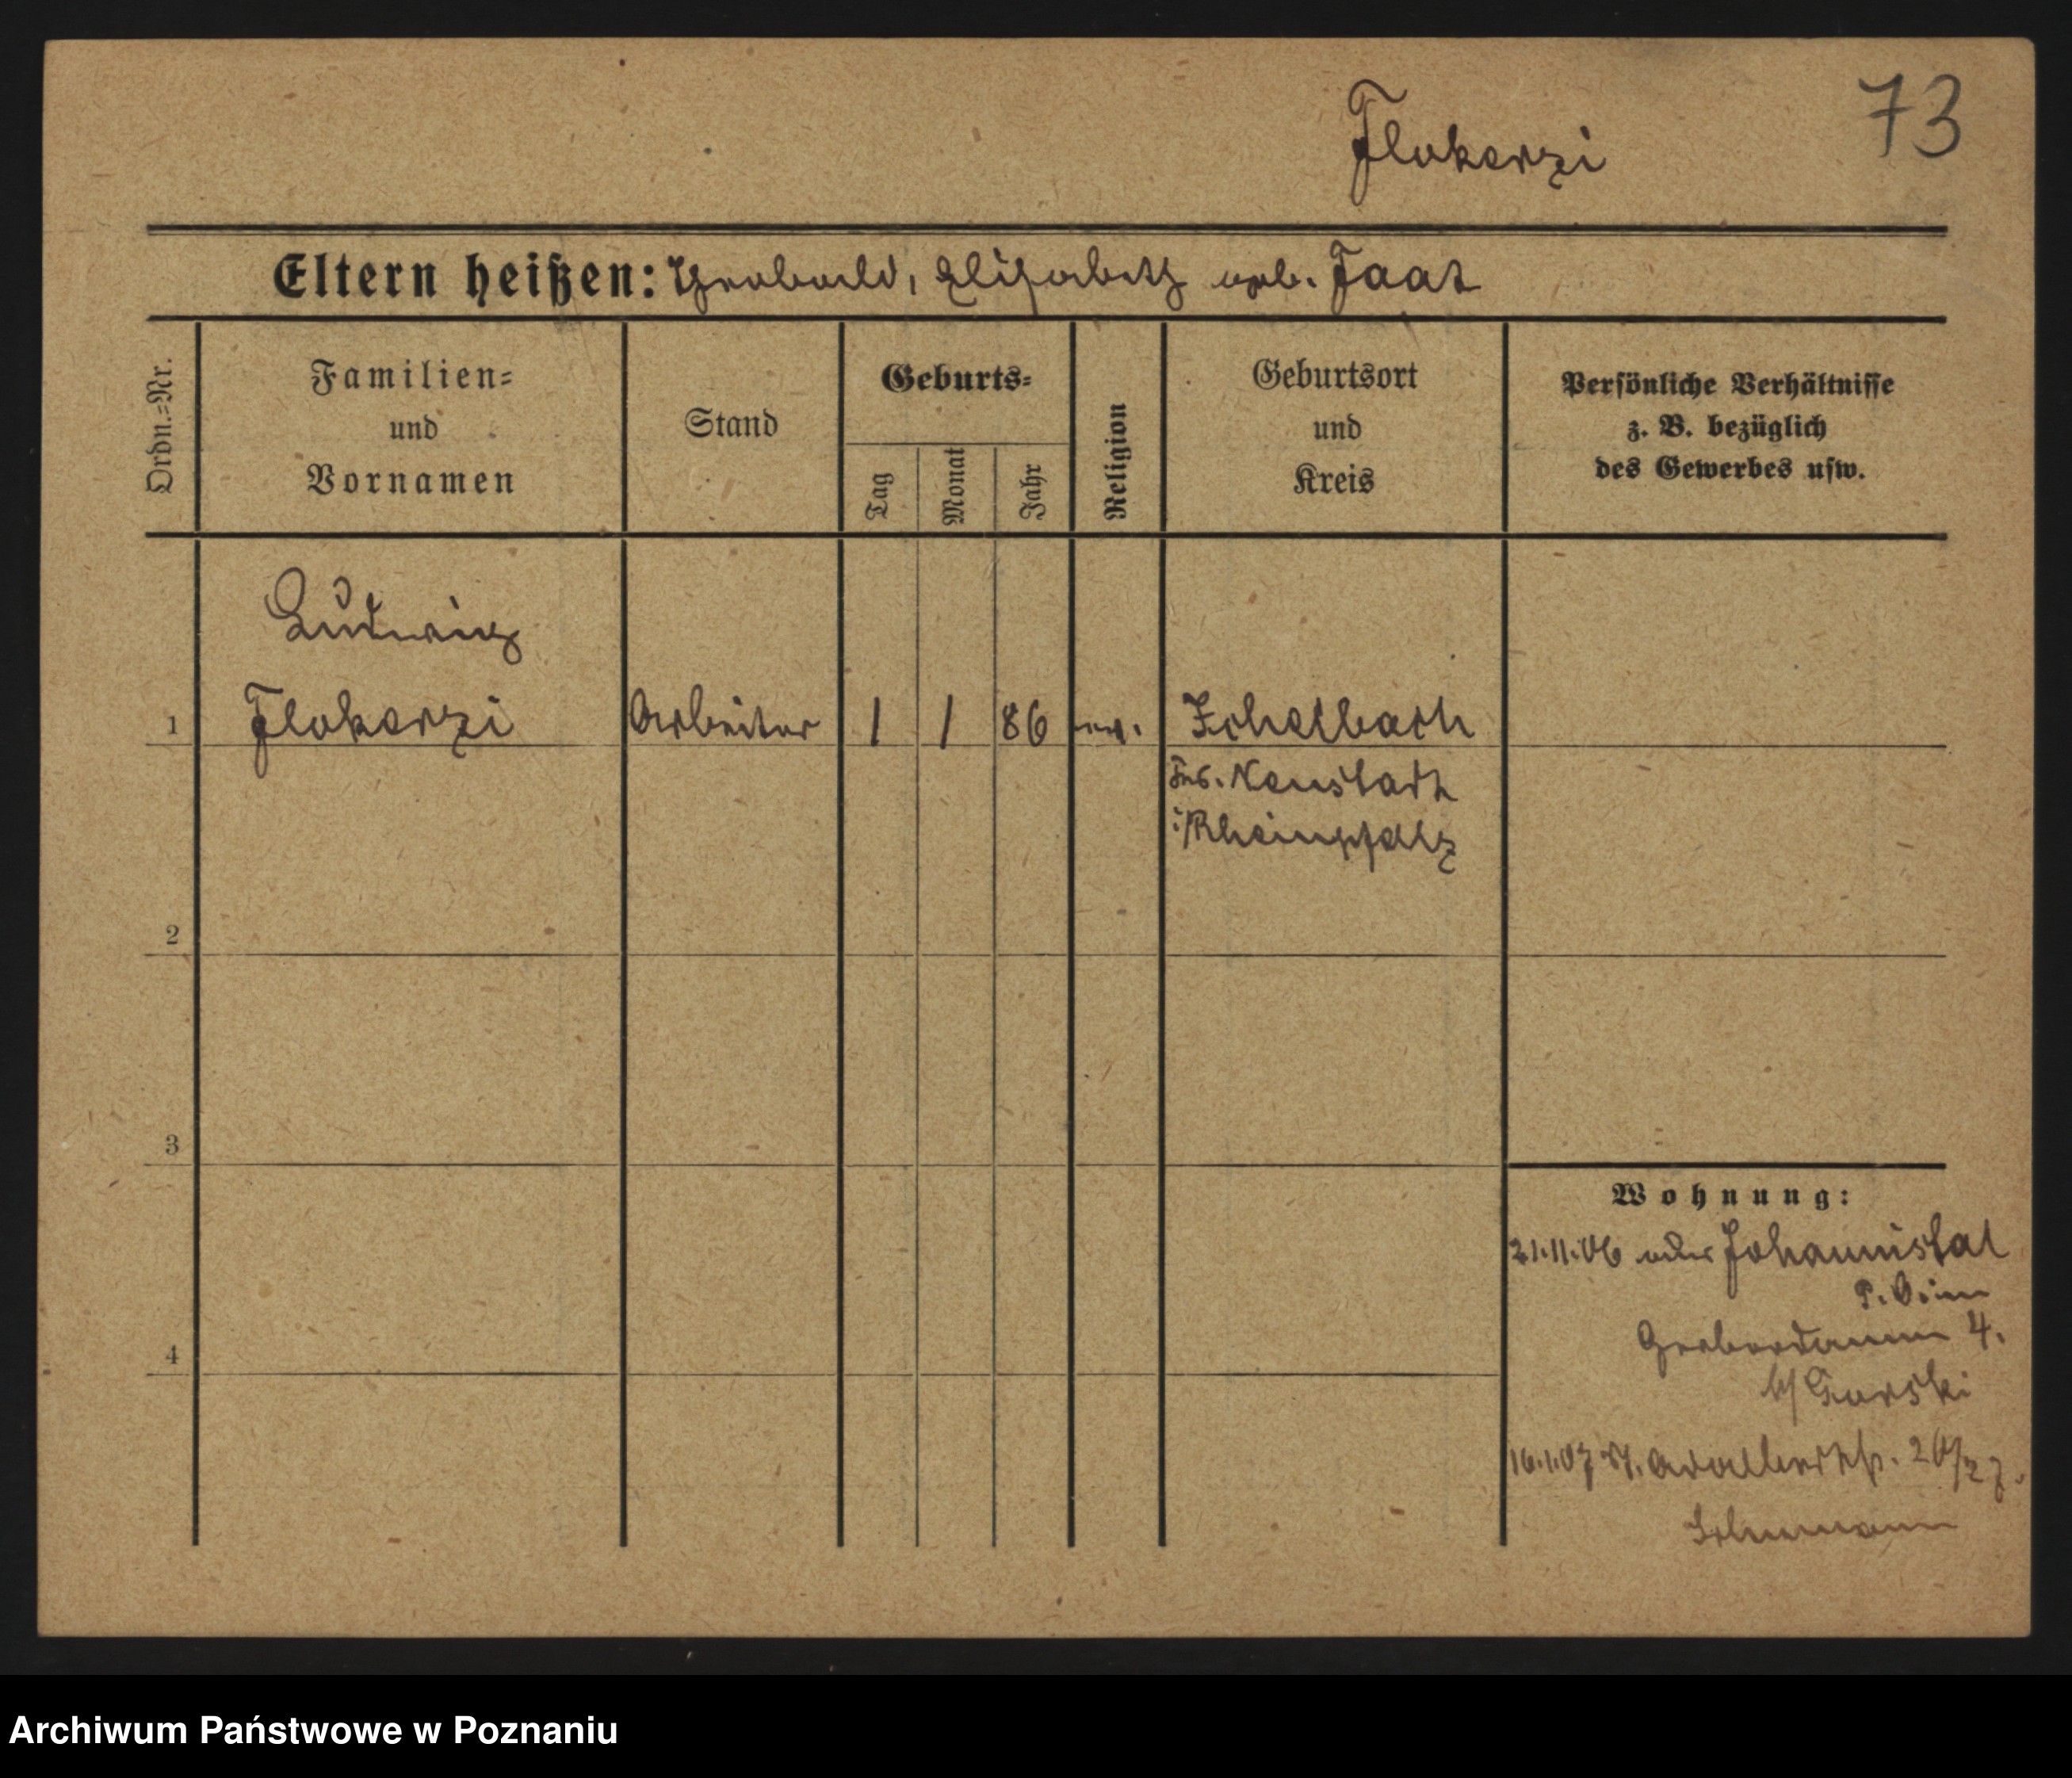 73
Flokerzi
Eltern heißen: Theobald, Elisabeth geb. Faat
Ordn.=Nr.
Familien=
und
Vornamen
Stand
Geburts=
Tag
Monat
Jahr
Religion
Geburtsort
und
Kreis
Persönliche Verhältnisse
z. B. bezüglich
des Gewerbes usw.
Ludwig
1 Flokerzi Arbeiter 1 1 86 ev.
Neustadt
i/Rheinpfalz
2
3
4
Wohnung:
21.11.06 Johannistal
Graberdamm 4.
b/ Gorski
16.1.07 St. Adalbertstr.
Schumann
Archiwum Państwowe w Poznaniu